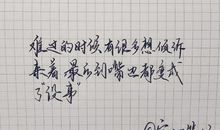 难过的时候有很多想倾诉
来着 最后到嘴边都变成
了“没事”